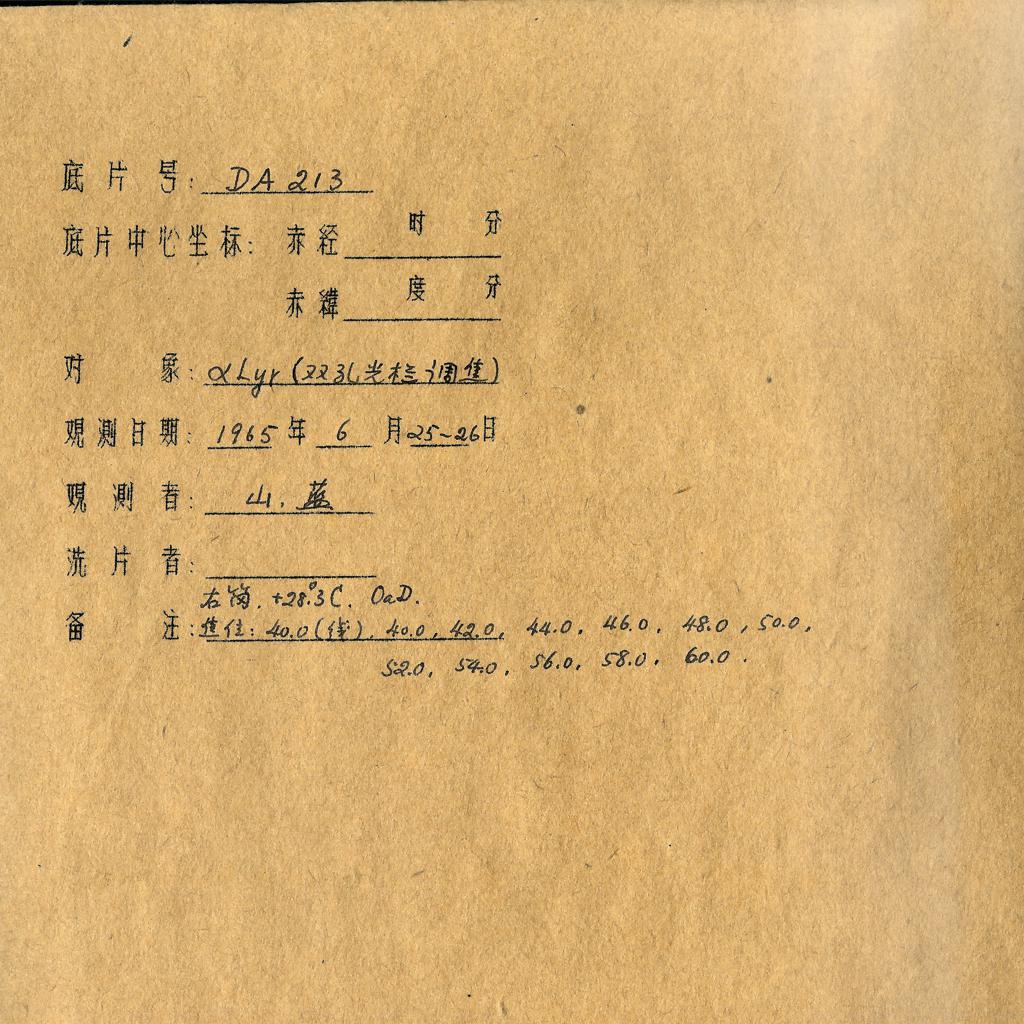 底片号: DA 213
时 分
底片中心坐标: 赤经
度 分
赤緯
对象: αLyr (双孔光栏调焦)
观测日期: 1965年 6 月25~26日
观测者: 山. 蓝
洗片者:
+28.°3C. OaD.
备注: 40.0(线). 40.0, 42.0, 44.0. 46.0. 48.0, 50.0,
52.0, 54.0, 56.0, 58.0. 60.0.